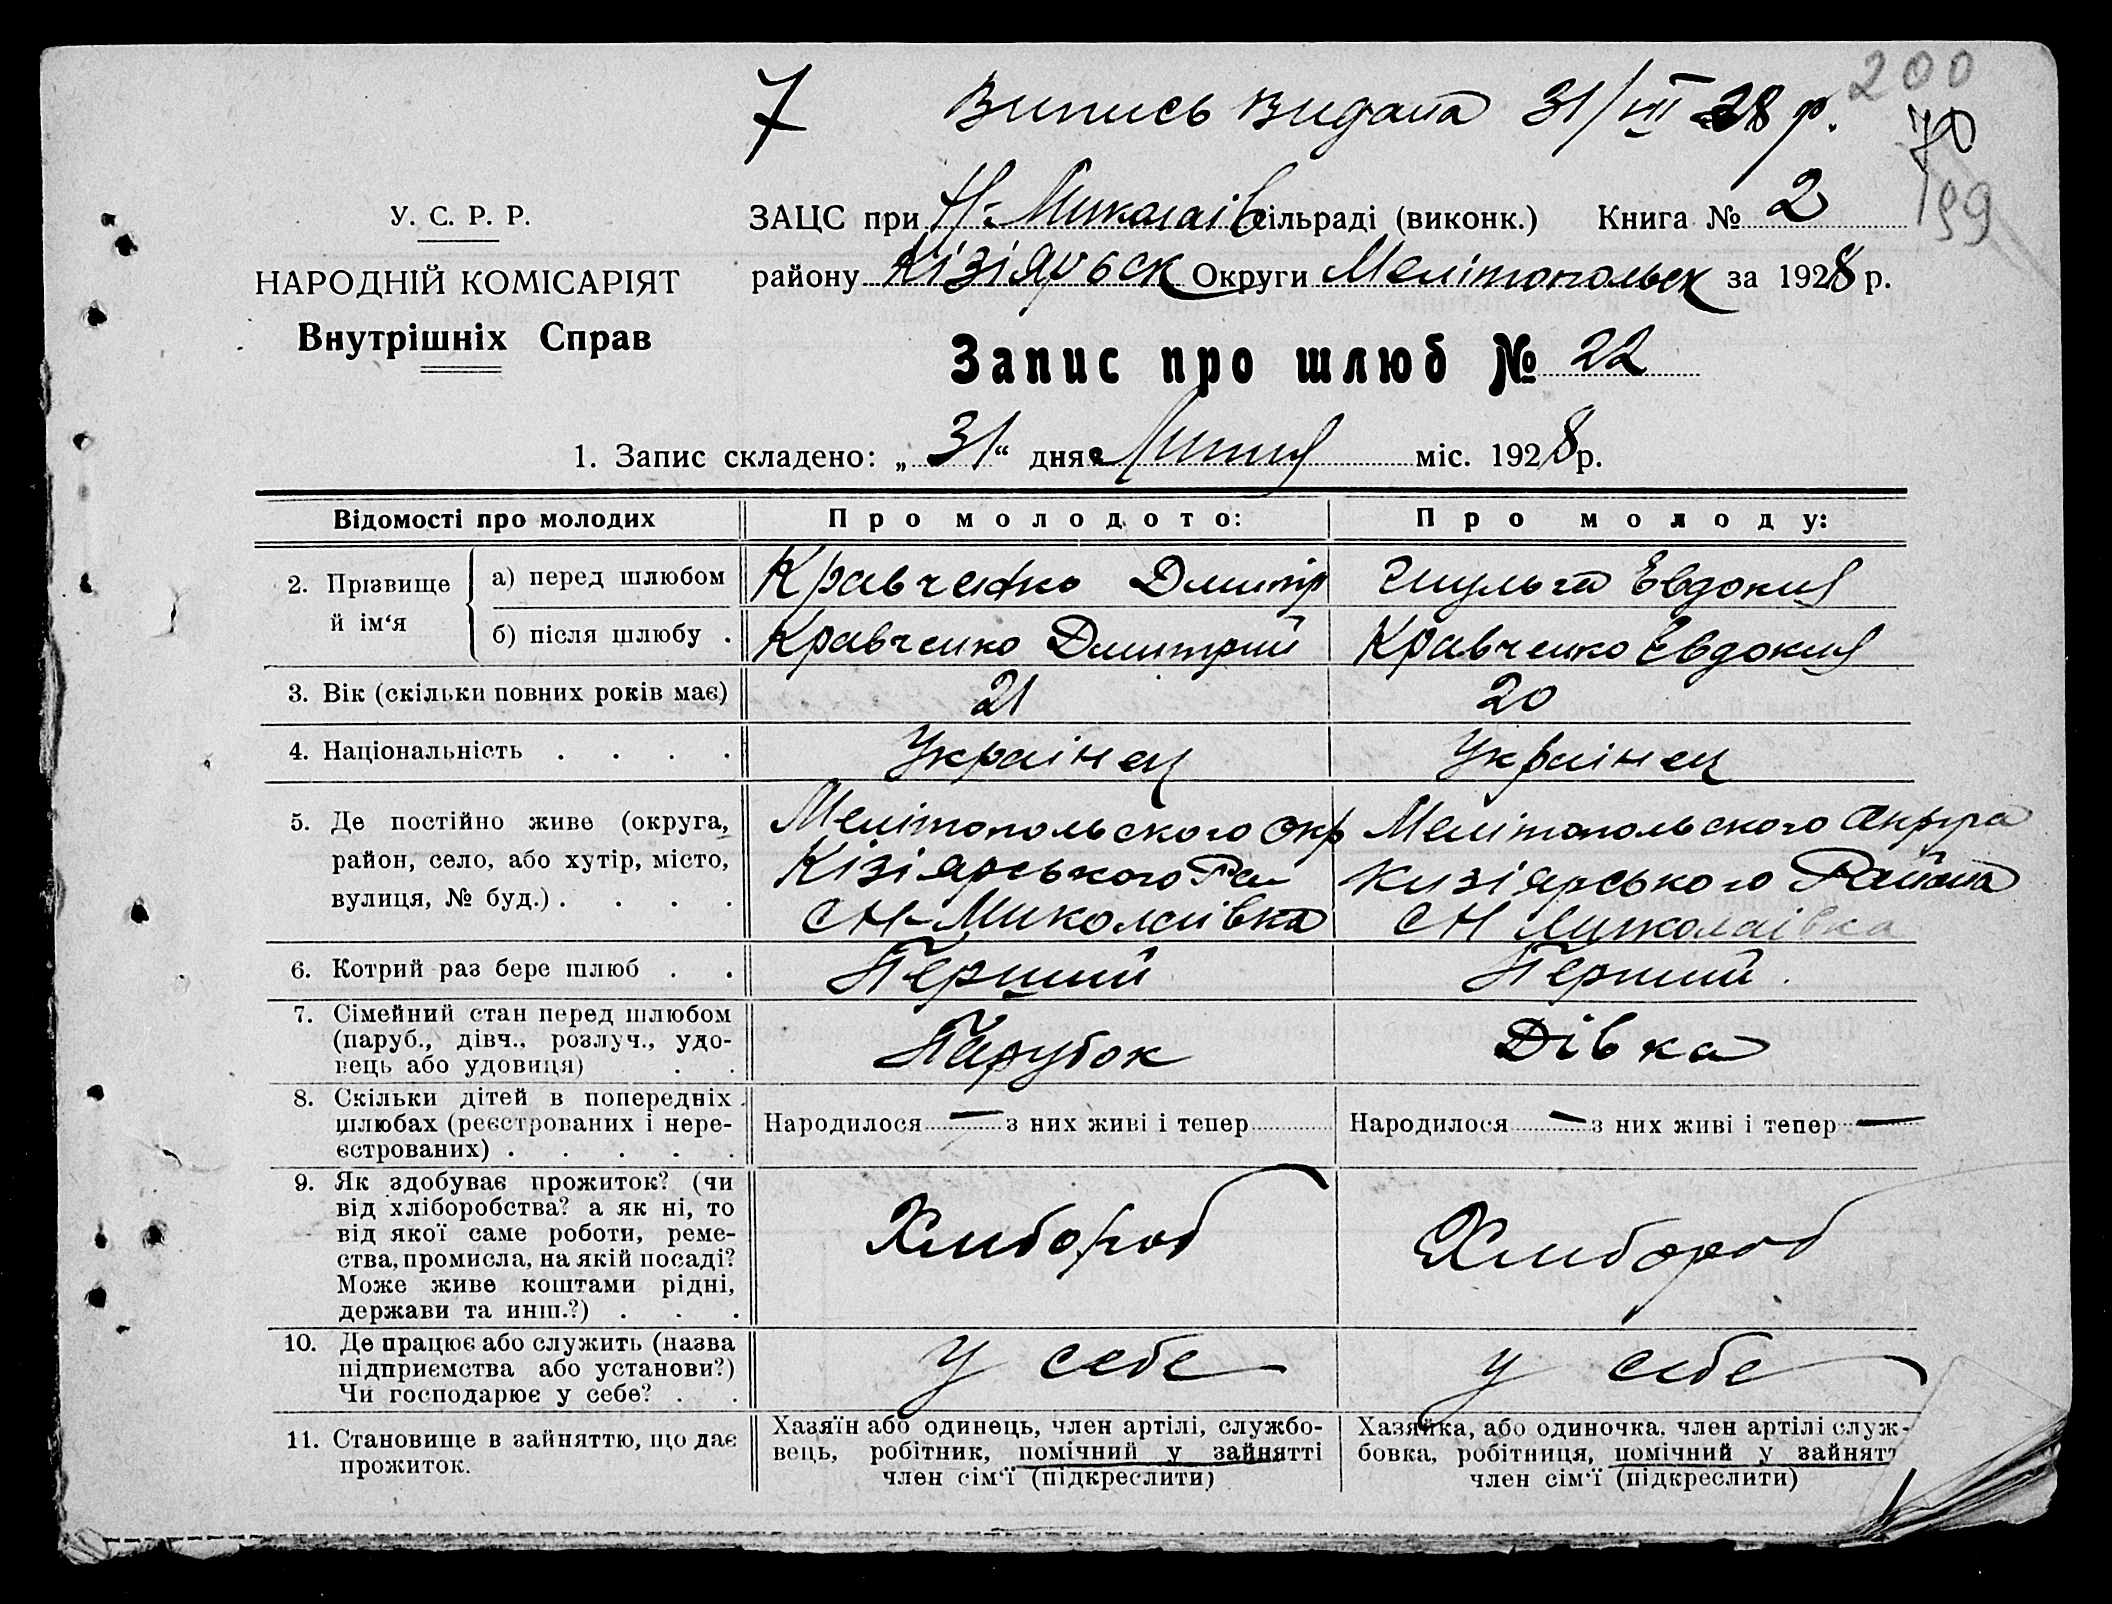 200
7 Випись видана 31/VII 28 р.
70
199
У. С. Р. Р.
НАРОДНІЙ КОМІСАРІЯТ
Внутрішніх Справ
ЗАЦС при Н-Миколаїв сільраді (виконк.) Книга № 2
району Кізіярьск Округи Мелітопольск за 1928 р.
Запис про шлюб № 22
1. Запис складено: „31“ дня Липня міс. 1928 р.
Відомості про молодих Про молодого: Про молоду:
2. Прізвище й ім‘я
а) перед шлюбом Кравченко Дмитр Шульга Евдокия
б) після шлюбу . Кравченко Дмитрий Кравченко Евдокия
3. Вік (скільки повних років має) 21 20
4. Національність . . . . Украінец Украінец
5. Де постійно живе (округа, Мелітопольского окр Мелітопольского округа
район, село, або хутір, місто, Кізіярського Ра Кизіярського Района
вулиця, № буд.) . . . . С Н-Миколаівка С Н Миколаівка
6. Котрий раз бере шлюб . . Перший Перший.
7. Сімейний стан перед шлюбом
(паруб., дівч., розлуч., удо-
вець або удовиця) . . Парубок Дівка
8. Скільки дітей в попередніх
шлюбах (реєстрованих і нере-
єстрованих) . . . . .
Народилося — з них живі і тепер Народилося — з них живі і тепер —
9. Як здобуває прожиток? (чи
від хліборобства? а як ні, то
від якої саме роботи, реме-
ства, промисла, на якій посаді?
Може живе коштами рідні,
держави та инш.?) . . .
Хлибороб Хлибороб
10. Де працює або служить (назва
підприємства або установи?)
Чи господарює у себе? . .
У себе У себе
11. Становище в зайняттю, що дає
прожиток.
Хазяїн або одинець, член артілі, службо-
вець, робітник, помічний у зайнятті
член сім‘ї (підкреслити)
Хазяйка, або одиночка, член артілі служ-
бовка, робітниця, помічний у зайнят
член сім‘ї (підкреслити)